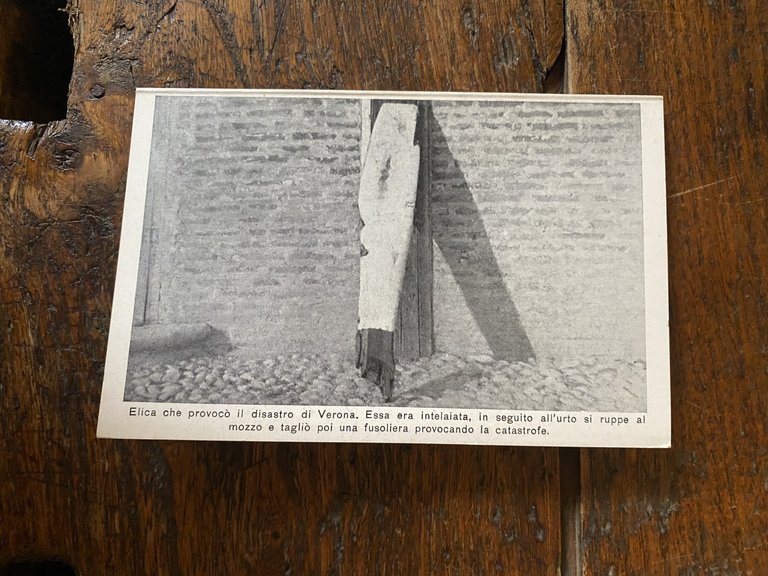 Elica che provocò il disastro di Verona. Essa era intelaiata, in seguito all'urto si ruppe al
mozzo e tagliò poi una fusoliera provocando la catastrofe.